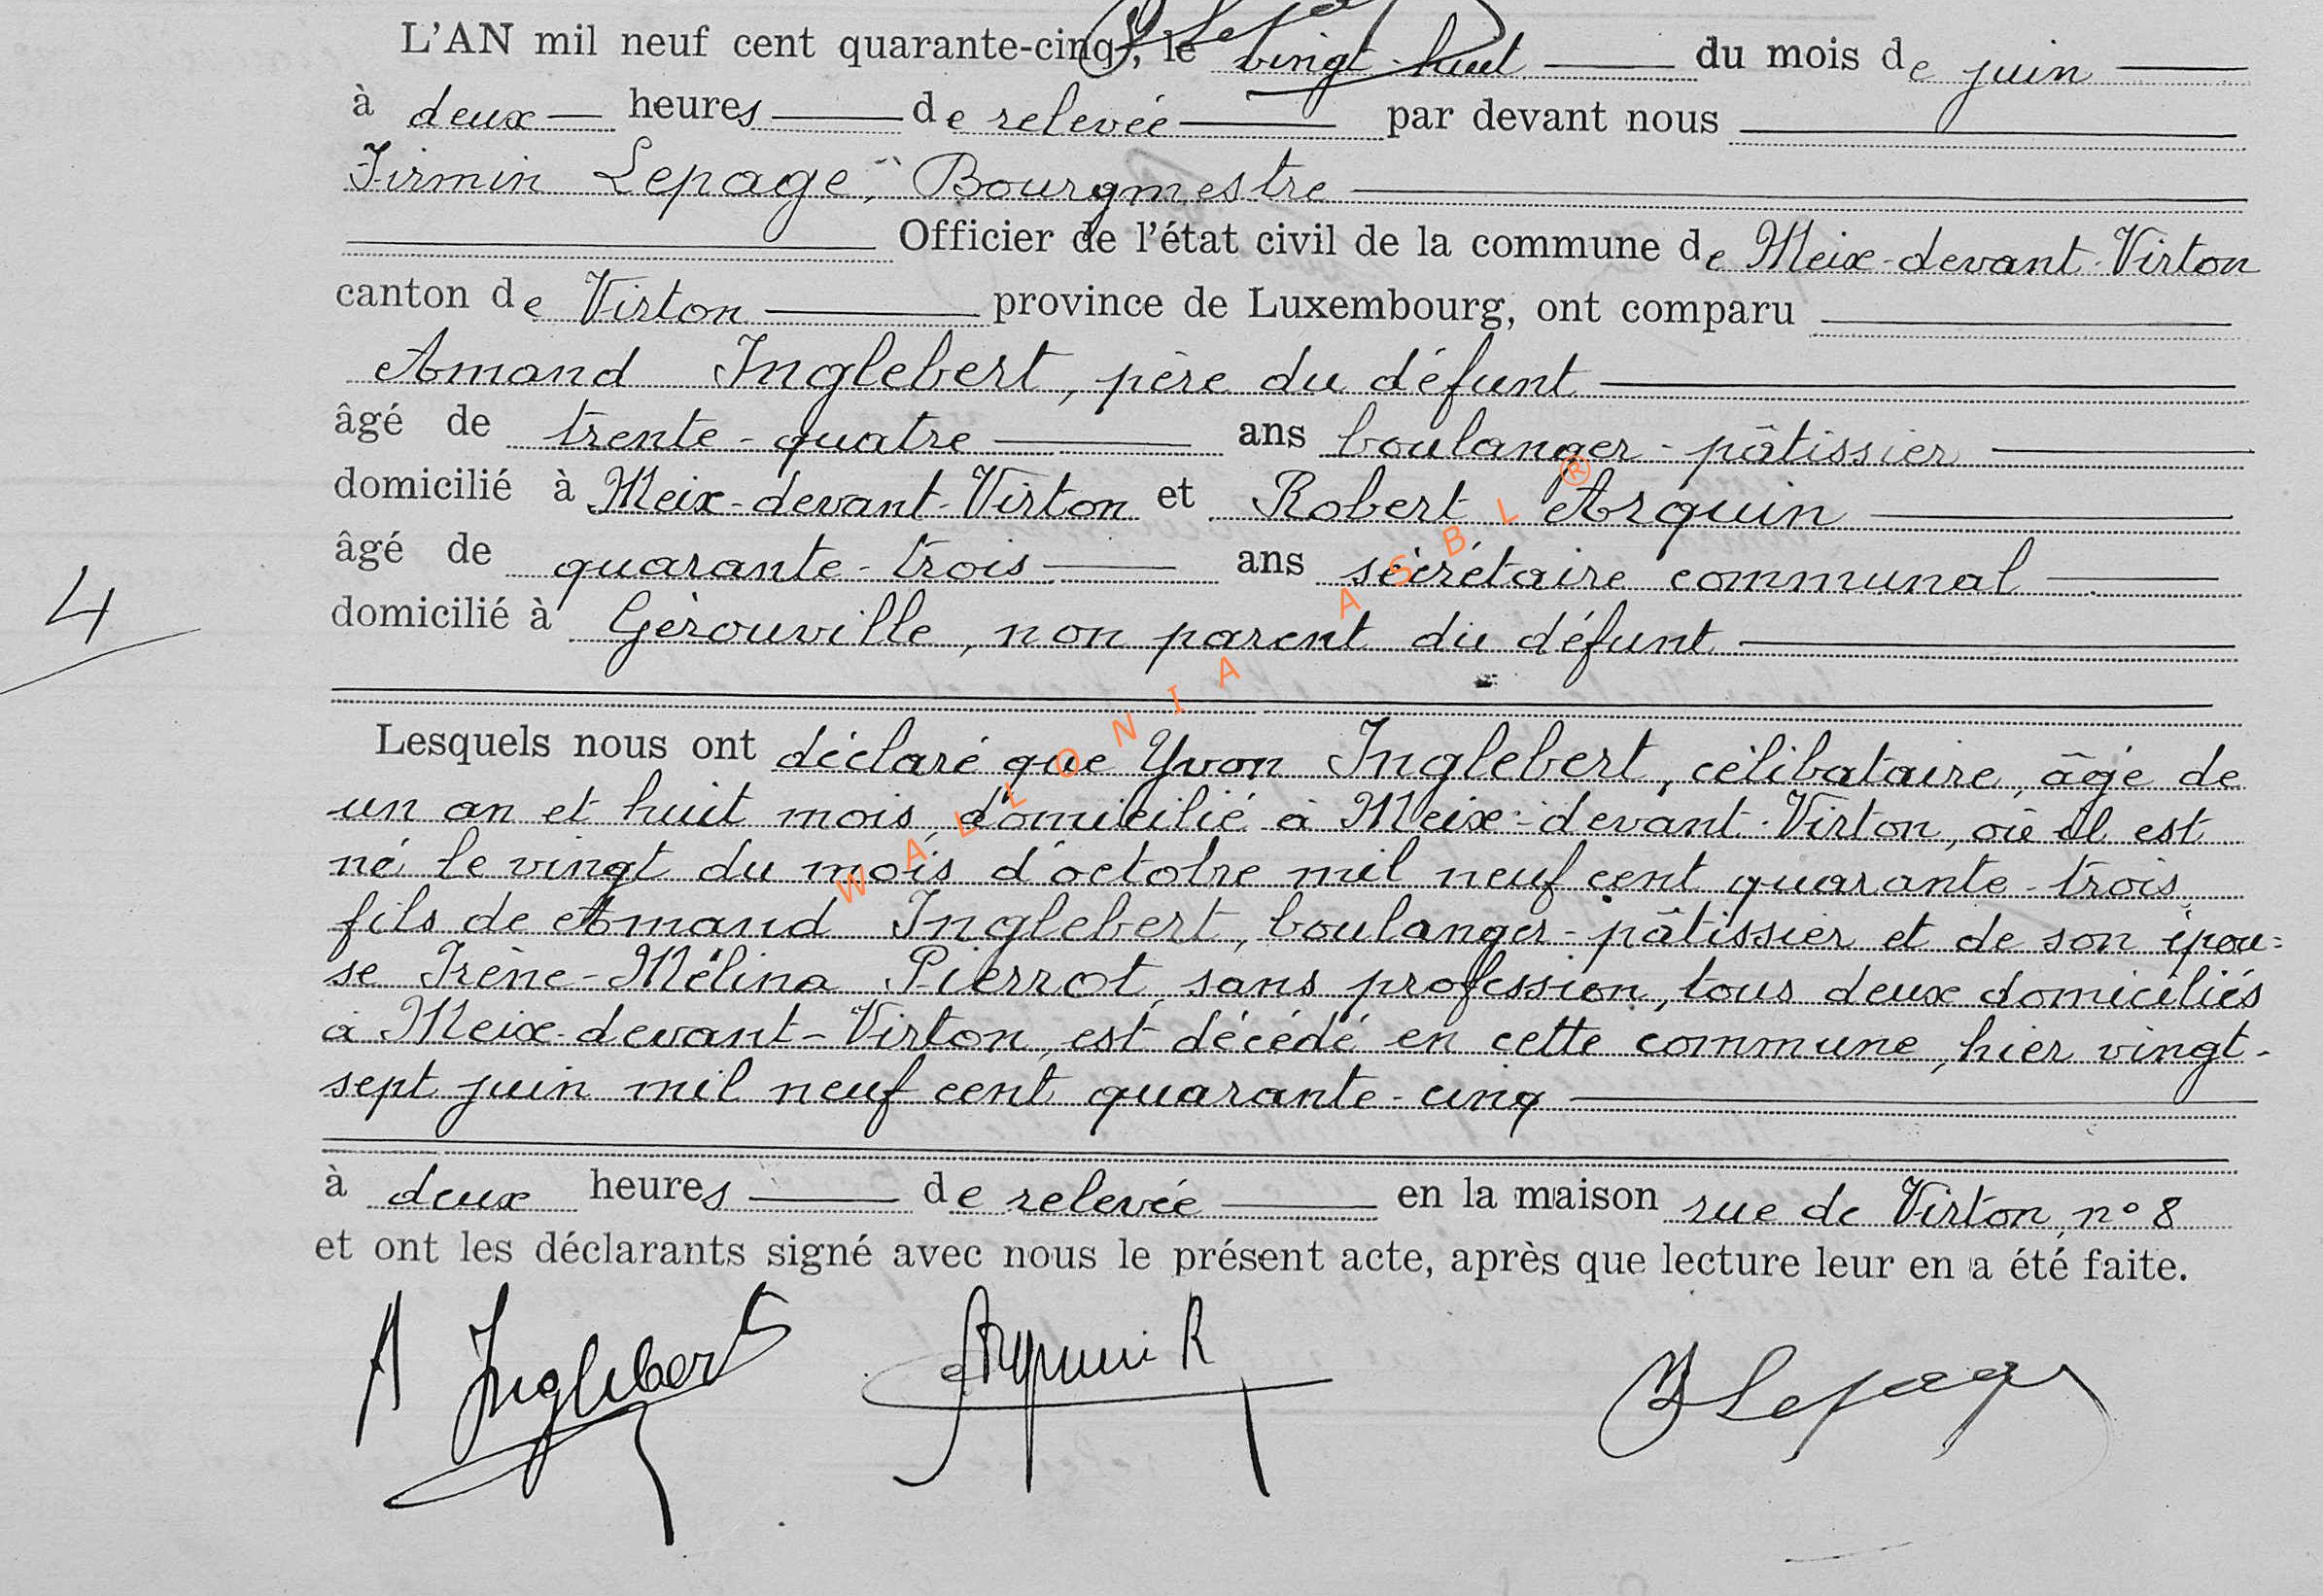 L'AN mil neuf cent quarante-cinq, le vingt-huit du mois de juin
à deux heures de relevée par devant nous
Firmin Lepage, Bourgmestre
Officier de l'état civil de la commune de Meix-devant-Virton
canton de Virton province de Luxembourg, ont comparu
Amand Inglebert, père du défunt
âgé de trente-quatre ans boulanger-pâtissier
domicilié à Meix-devant-Virton et Robert Arquin
âgé de quarante-trois ans secrétaire communal
4
domicilié à Gérouville, non parent du défunt
Lesquels nous ont déclaré que Yvon Inglebert, célibataire, âgé de
un an et huit mois, domicilié à Meix-devant-Virton, où il est
né le vingt du mois d'octobre mil neuf cent quarante-trois,
fils de Amand Inglebert, boulanger-pâtissier et de son épou=
se Irène-Mélina Pierrot, sans profession, tous deux domiciliés
à Meix-devant-Virton, est décédé en cette commune, hier vingt-
sept juin mil neuf cent quarante-cinq
à deux heures de relevée en la maison rue de Virton, n° 8
et ont les déclarants signé avec nous le présent acte, après que lecture leur en a été faite.
A Inglebert Arquin R F Lepage
WALLONIA ASBL ®